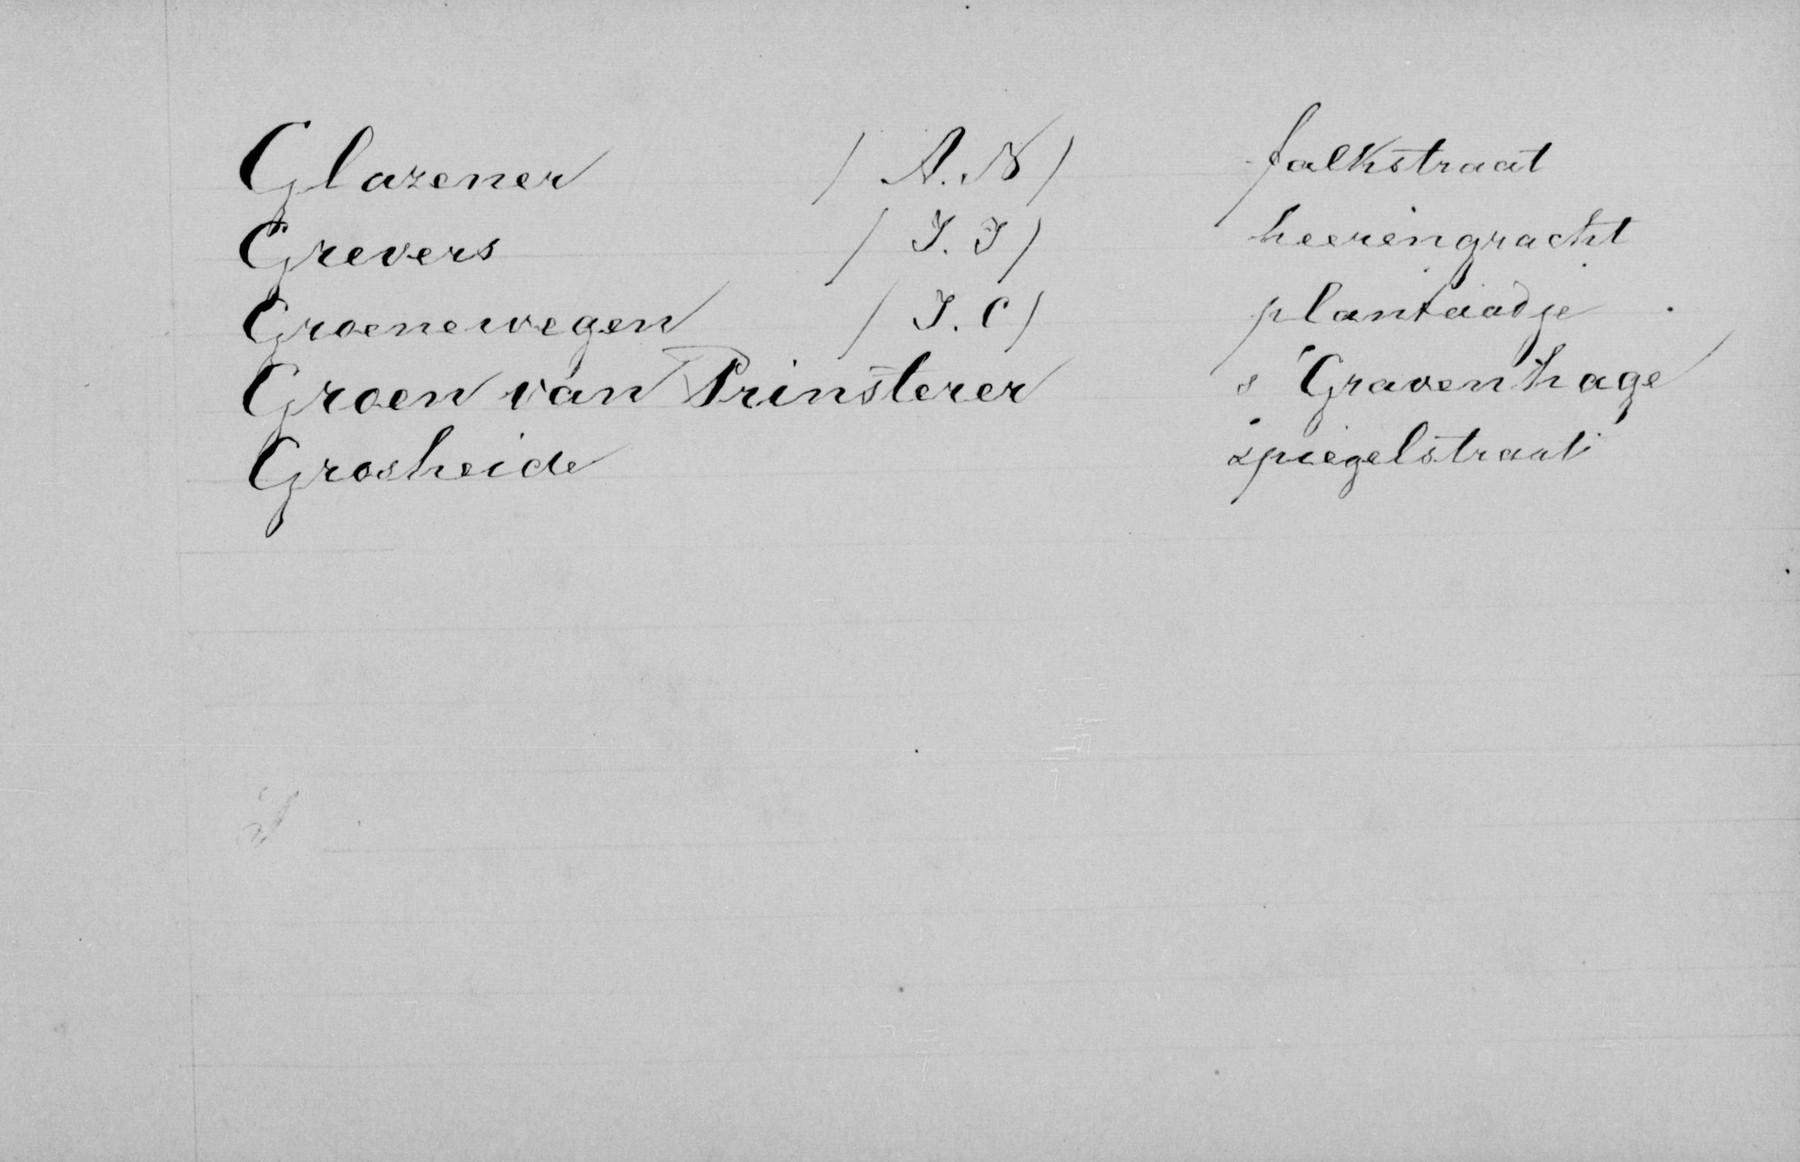 Glazener (A. N) falkstraat
Grevers (J. J) heerengracht
Groenewegen (J. C) plantaadje
Groen van Prinsterer s'Gravenhage
Grosheide spiegelstraat